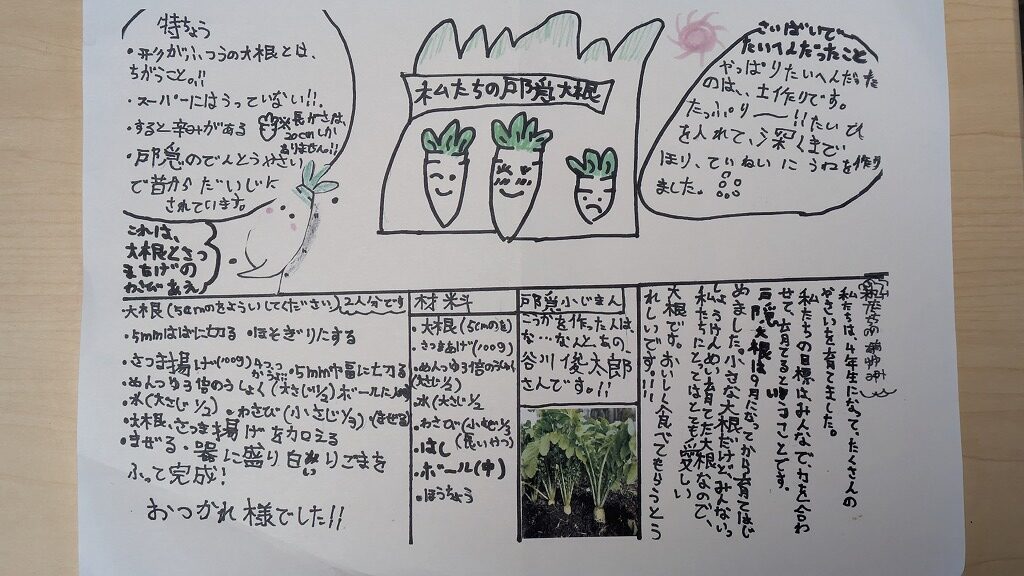 特ちょう
・形がふつうの大根とは、
ちがうこと。!!
・スーパーにはうっていない!!。
・すると辛みがある
※長さは、
20cmしか
ありません!!
・戸隠のでんとうやさい
で昔からだいじに
されています。
私たちの戸隠大根
さいばいで〜
たいへんだったこと
やっぱりたいへんだった
のは、、土作りです。
たっぷり〜!!たいひ
を入れて、深くまで
ほり、ていねいにうねを作り
ました。
これは、
大根とさつ
まあげの
わさびあえ
大根(5cmのをよういしてください)2人分です
・5mmはばに切る ・ほそぎりたする
・さつま揚げ(100g) ・5mm巾富に切る
・めんつゆ3倍のうしょく(大さじ1/2)ボールに入れる
・水(大さじ1/2)・わさび(小さじ1/3)(まぜる)
・大根、さつま揚げを加える
・まぜる・器に盛り白いりごまを
ふって完成!
おつかれ様でした!!
材料
・大根(5cmのを)
・さつまあげ(100g)
・めんつゆ3倍のうしゅく
(大さじ1/2)
・水(大さじ1/2
・わさび(小さじ1/3
(長いやつ)
・はし
・ボール(中)
・ほうちょう
戸隠小じまん
こうかを作った人は、
な…なんとあの、
谷川俊太郎
さんです。!!
私たちは、4年生になって、たくさんの
やさいを育てました。
私たちの目標はみんなで、力を合わ
せて、育てるということです。
戸隠大根は9月になってから育てはじ
めました。小さな大根だけどみんないっ
しょうけんめい育てた大根なので、
私たちにとってはとても愛しい
大根です。おいしく食べてもらうとう
れしいです!!!